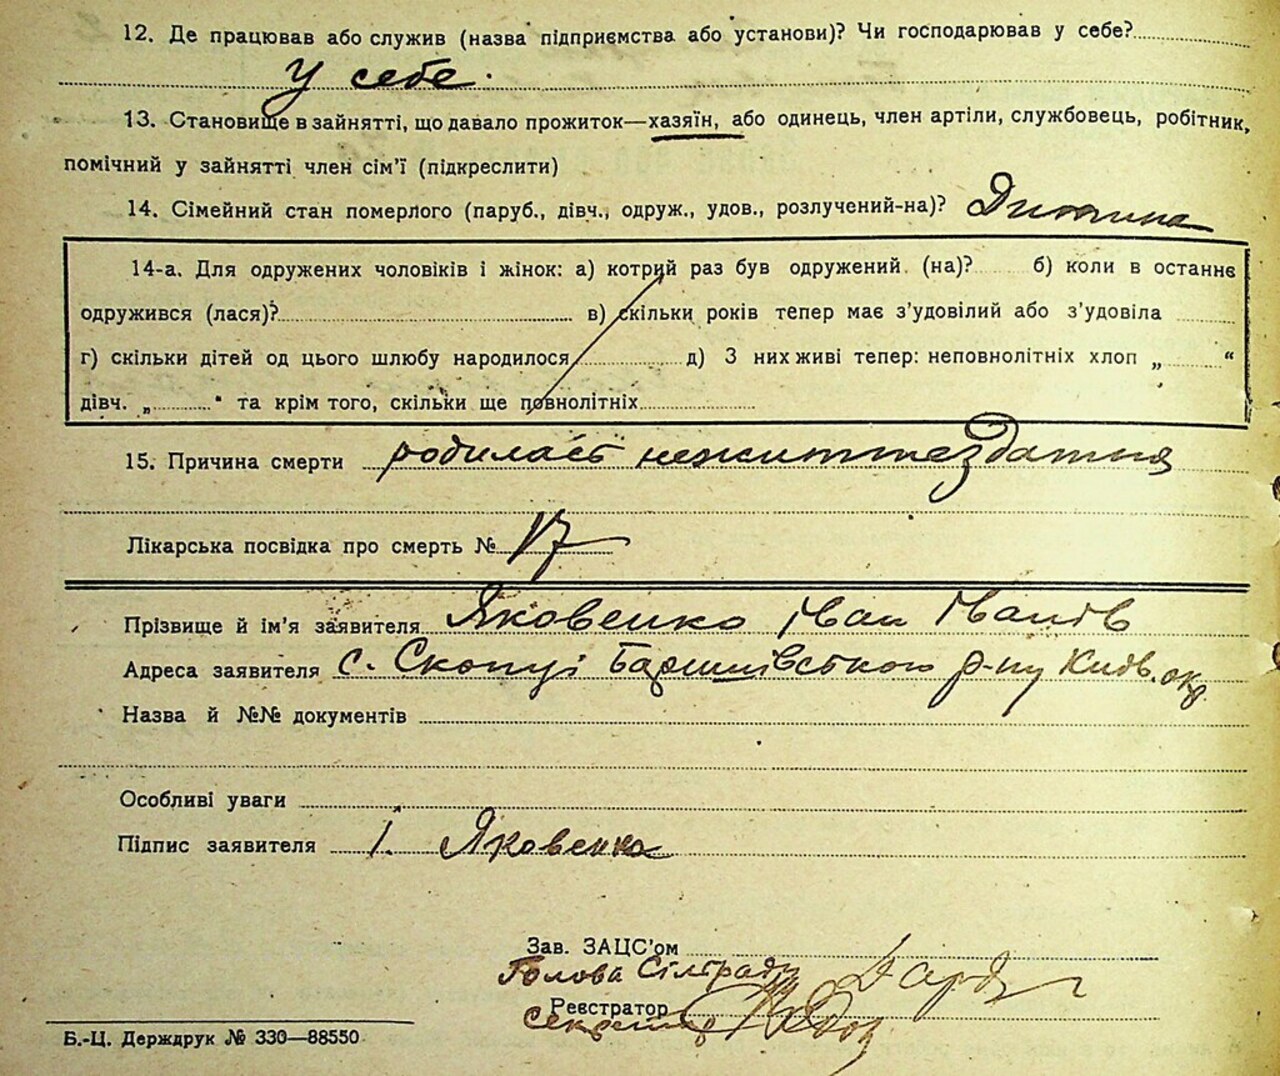 12. Де працював або служив (назва підприємства або установи)? Чи господарював у себе?
У себе.
13. Становище в зайнятті, що давало прожиток—хазяїн, або одинець, член артіли, службовець, робітник,
помічний у зайнятті член сім'ї (підкреслити)
14. Сімейний стан померлого (паруб., дівч., одруж., удов., розлучений-на)? Дитина
14-а. Для одружених чоловіків і жінок: а) котрий раз був одружений (на)? б) коли в останнє
одружився (лася)? в) скільки років тепер має з'удовілий або з'удовіла
г) скільки дітей од цього шлюбу народилося д) З них живі тепер: неповнолітніх хлоп „ “
дівч. „ “ та крім того, скільки ще повнолітніх
15. Причина смерти родилась нежиттездатня
Лікарська посвідка про смерть № 17
Прізвище й ім'я заявителя Яковенко Іван Іванів
Адреса заявителя с. Скопці Баришівського р-ну Київ. окр.
Назва й №№ документів
Особливі уваги
Підпис заявителя І. Яковенко
Зав. ЗАЦС'ом
Голова Сілради
Реєстратор
секретар
Б.-Ц. Держдрук № 330—88550